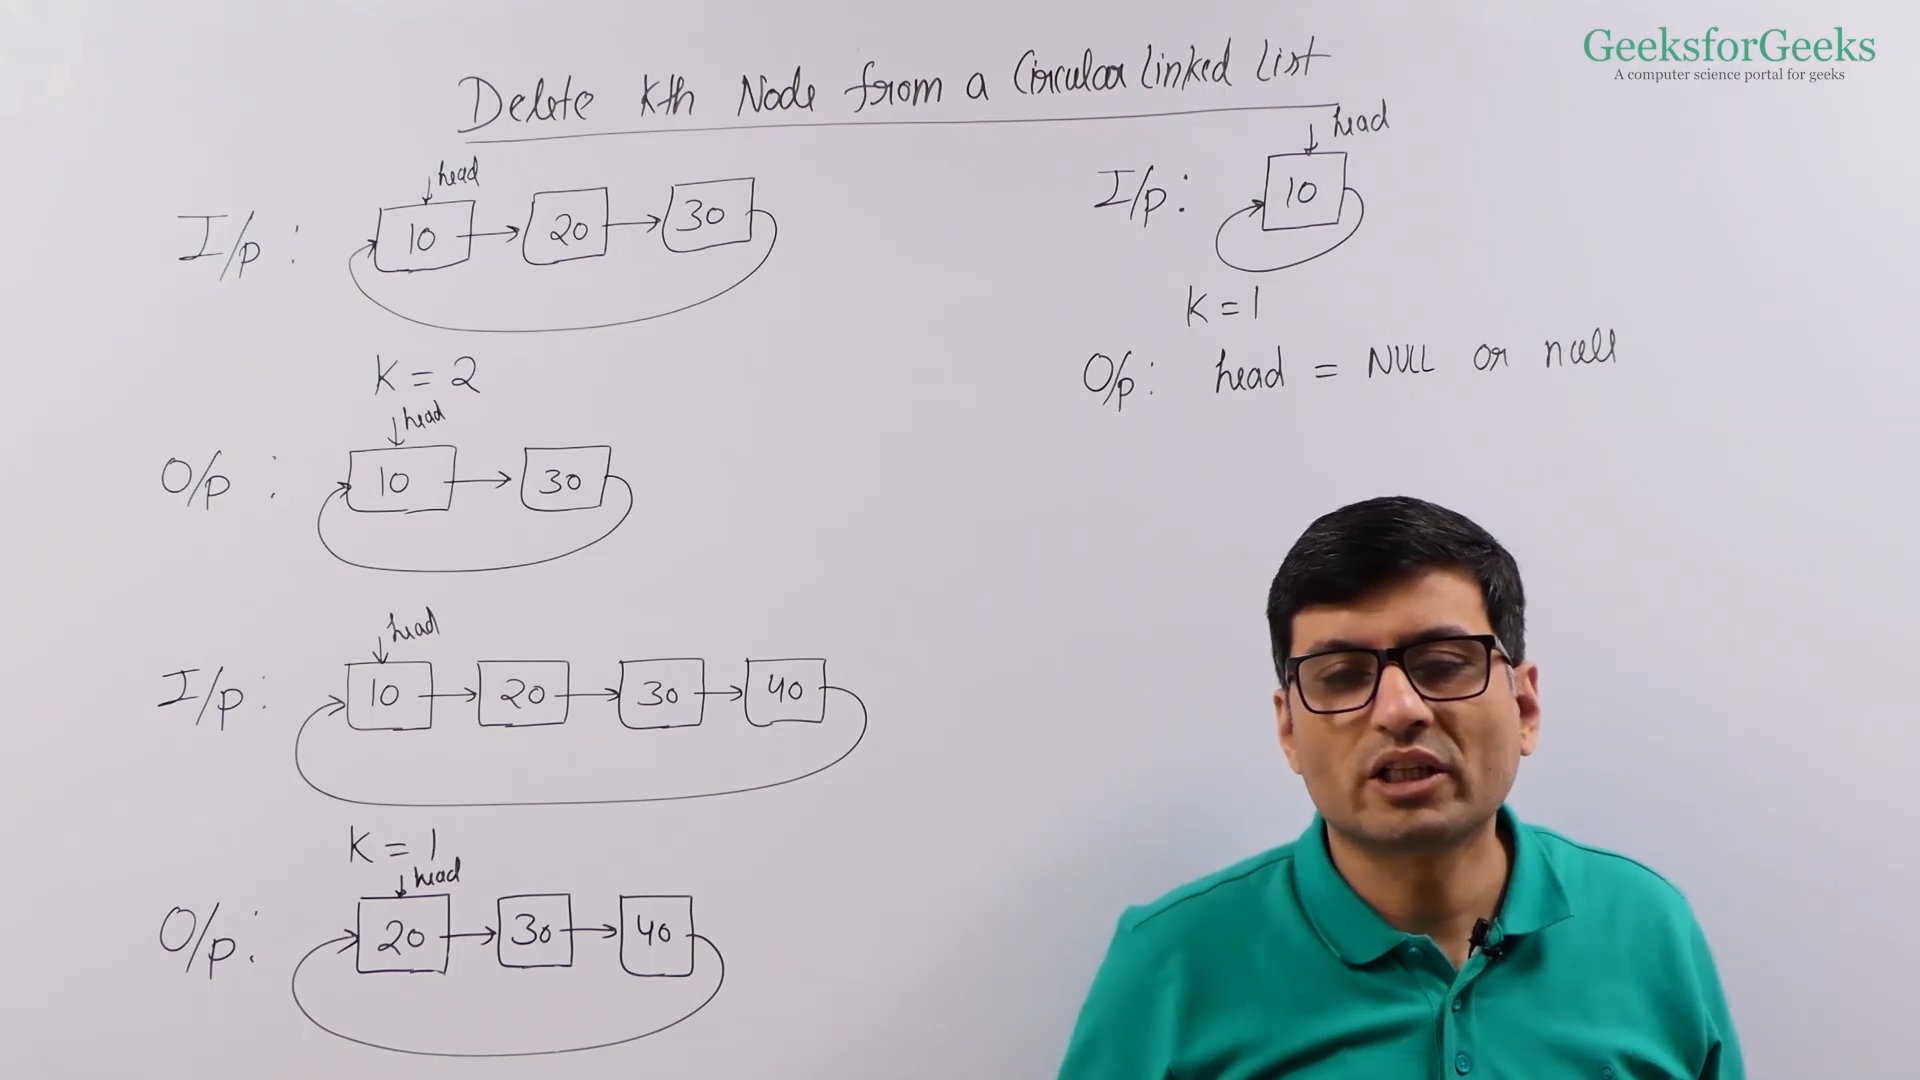 GeeksforGeeks
A computer science portal for geeks
Delete Kth Node from a Circular Linked List
I/p :
head
10 20 30
K = 2
O/p :
head
10 30
I/p :
head
10 20 30 40
K = 1
O/p :
head
20 30 40
I/p :
head
10
K = 1
O/p : head = NULL or null